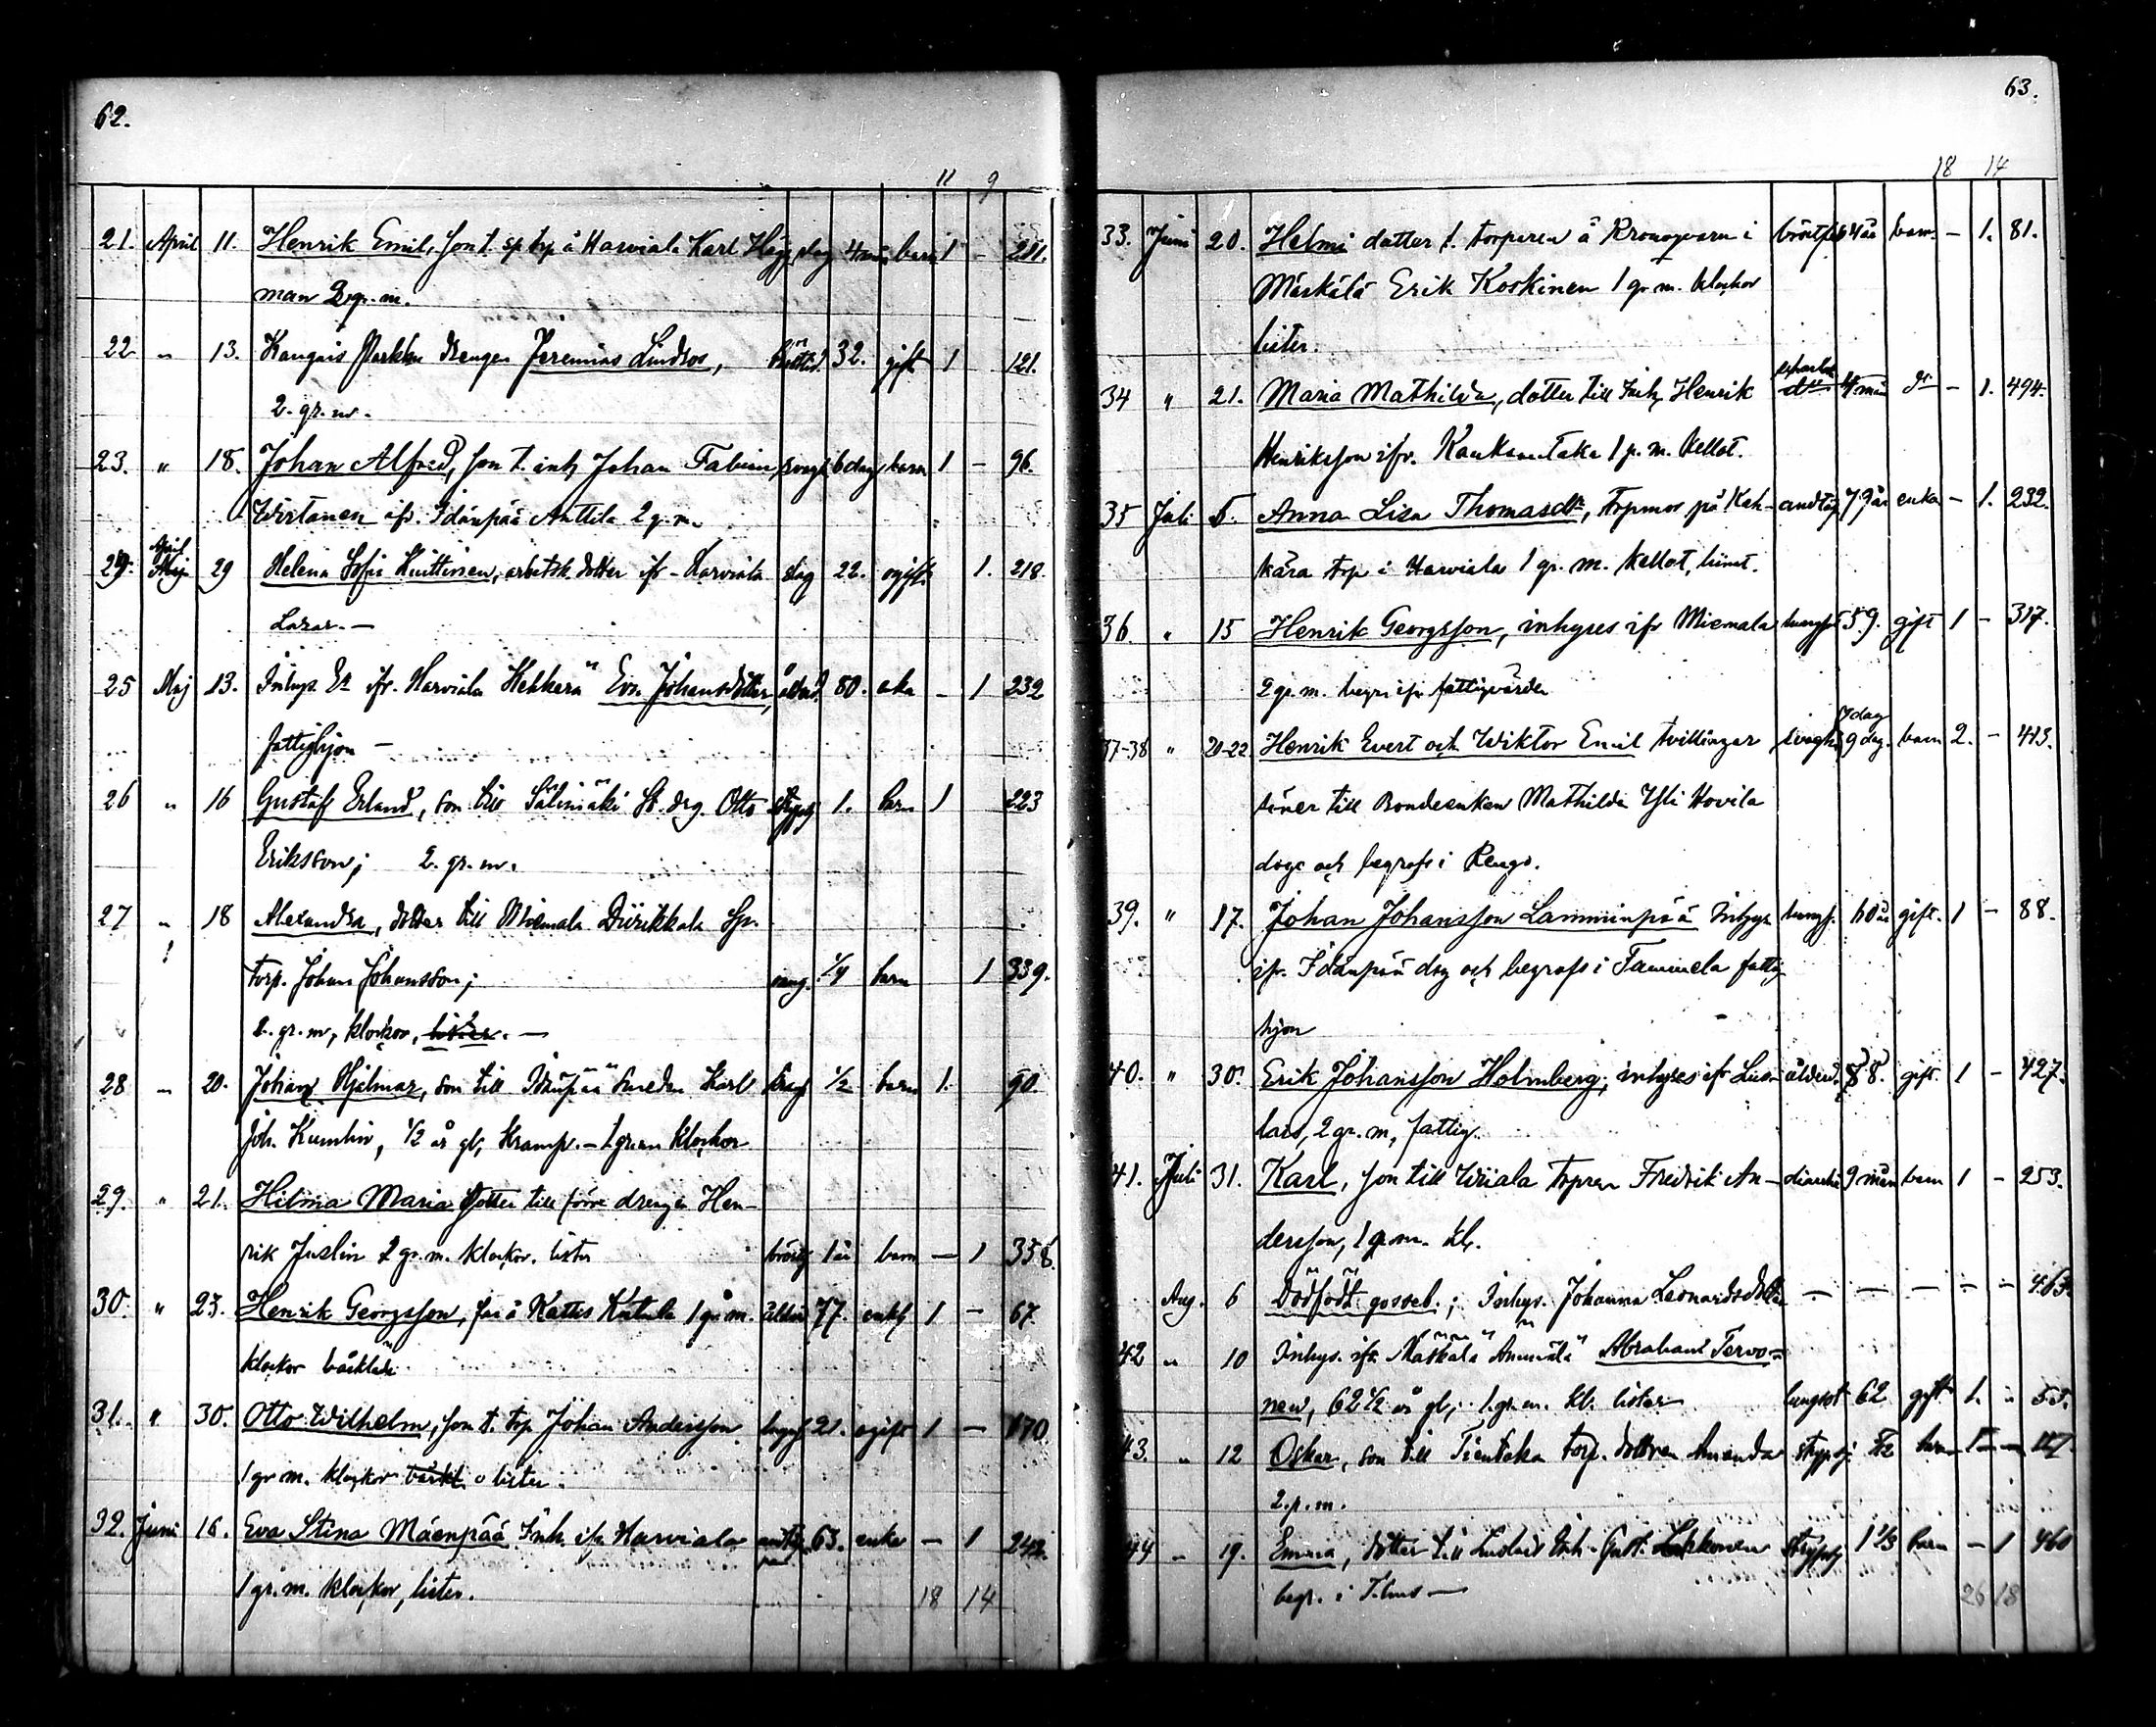 62.
11 9
21. April 11. Henrik Emil, son t. sp torp å Harviala Karl Hägg slag 4 mån barn 1 - 211.
man 2 gr. m.
22 " 13. Kangais Markku drengen Jeremias Lindroos, 32. gift 1 121.
2. gr. m.
23. " 18. Johan Alfred, son t. inh Johan Fabian svagh 6 dag barn 1 - 96.
Wirtanen ifr. Idänpää Anttila 2 g. m.
April
29 Helena Sofia Kuittinen, arbetsk. dotter ifr. Harviala slag 22. ogift 1. 218.
Lazar. —
25 Maj 13. Inhys. E^a ifr. Harviala Hekkerä Eva Johansdotter, ålderd. 80. eka - 1 232
fattighjon —
26 " 16 Gustaf Erland, son till Sälinmäki St. drg. Otto strypsj 1. barn 1 223
Eriksson; 2. gr. m.
27 " 18 Alexandra, dotter till Miemala Diirikkala Sp.
torp. Johan Johansson; 1/4 barn 1 339.
2. gr. m, klockor, lister. —
28 " 20. Johan Hjalmar, son till Idänpää smeden Karl 1/2 barn 1. 90.
Joh. Kumlin, 1/2 år gl, Kramp. – 1 gr. m klockor
29. " 21. Hilma Maria dotter till förre drengen Hen-
rik Juslin 2 gr. m. klockor. lister 1 år barn — 1 358
30. " 23. Henrik Georgsson, far å Kattis Katala 1 gr m. ålder 77. enkl 1 — 67.
klockor
31. " 30. Otto Wilhelm, son t. torp Johan Andersson lungs 21. ogift 1 — 170
1 gr m. klockor o lister.
32. Juni 16. Eva Stina Mäenpää Inh. ifr. Harviala 63. enka — 1 242.
1 gr. m. klockor, lister. 18 14
63.
18 14
33. Juni 20. Helmi dotter t. torparen å Kronoqvarn i 4 år barn - 1. 81.
Mäskälä Erik Koskinen 1 gr m. klockor
lister.
34 " 21. Maria Mathilda, dotter till Inh Henrik 4 mån d^o - 1. 494.
Henriksson ifr. Kankaantaka 1 g. m. kellot.
35 Juli 5. Anna Lisa Thomasd^r, torpmor på Kah- andtäp 79 år enka - 1. 232.
kära torp i Harviala 1 gr. m. kellot, liinat.
36. " 15 Henrik Georgsson, inhyses ifr Miemala lungs 59. gift 1 - 317.
2 gr. m. fattigvården
7 dag
37-38 " 20-22 Henrik Evert och Wiktor Emil tvillingar svagh 9 dag. barn 2. - 413.
söner till Bondeenkan Mathilda Yli Hovila
dog och begrofs i Rengo.
39. " 17. Johan Johansson Lamminpää Inhys lungs. 60 år gift. 1 - 88.
ifr. Idänpää dog och begrafs i Tammela fattig
hjon
40. " 30. Erik Johansson Holmberg, inhyses ifr ålderd. 78. gift. 1 - 427.
2 gr. m, fattig.
41. Juli 31. Karl, son till Wiiala torparen Fredrik An- diarrhé 9 mån barn 1 - 253.
dersson, 1 g. m. kl.
Aug. 6 Dödfödt gosseb.; Inhys. Johanna Leonardsdotter — — — — — 463.
42 " 10 Inhys. ifr. Mäskälä Ämmälä Abraham Tervo-
nen, 62 1/2 år gl; 1. gr. m. kl. lister lungsot 62 gift 1. " 55.
43. " 12 Oskar, son till Tientaka torp. dottren Amanda strypsj. 1/2 barn 1 — 117
2. g. m.
44 " 19. Emma, dotter till Inh. Gust. Lakkonen strypsj 1 1/3 barn - 1 460
begr. i T:hus — 26 18